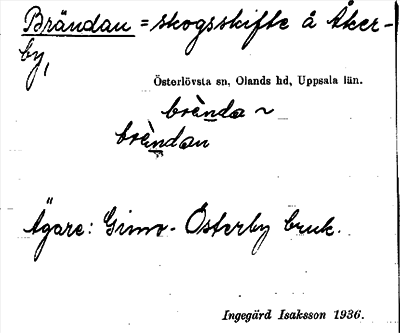 Brändan = skogsskifte å Åker-
by,
Österlövsta sn, Olands hd, Uppsala län.
brènda ~
brèndan
Ägare: Gimo-Österby bruk.
Ingegärd Isaksson 1936.